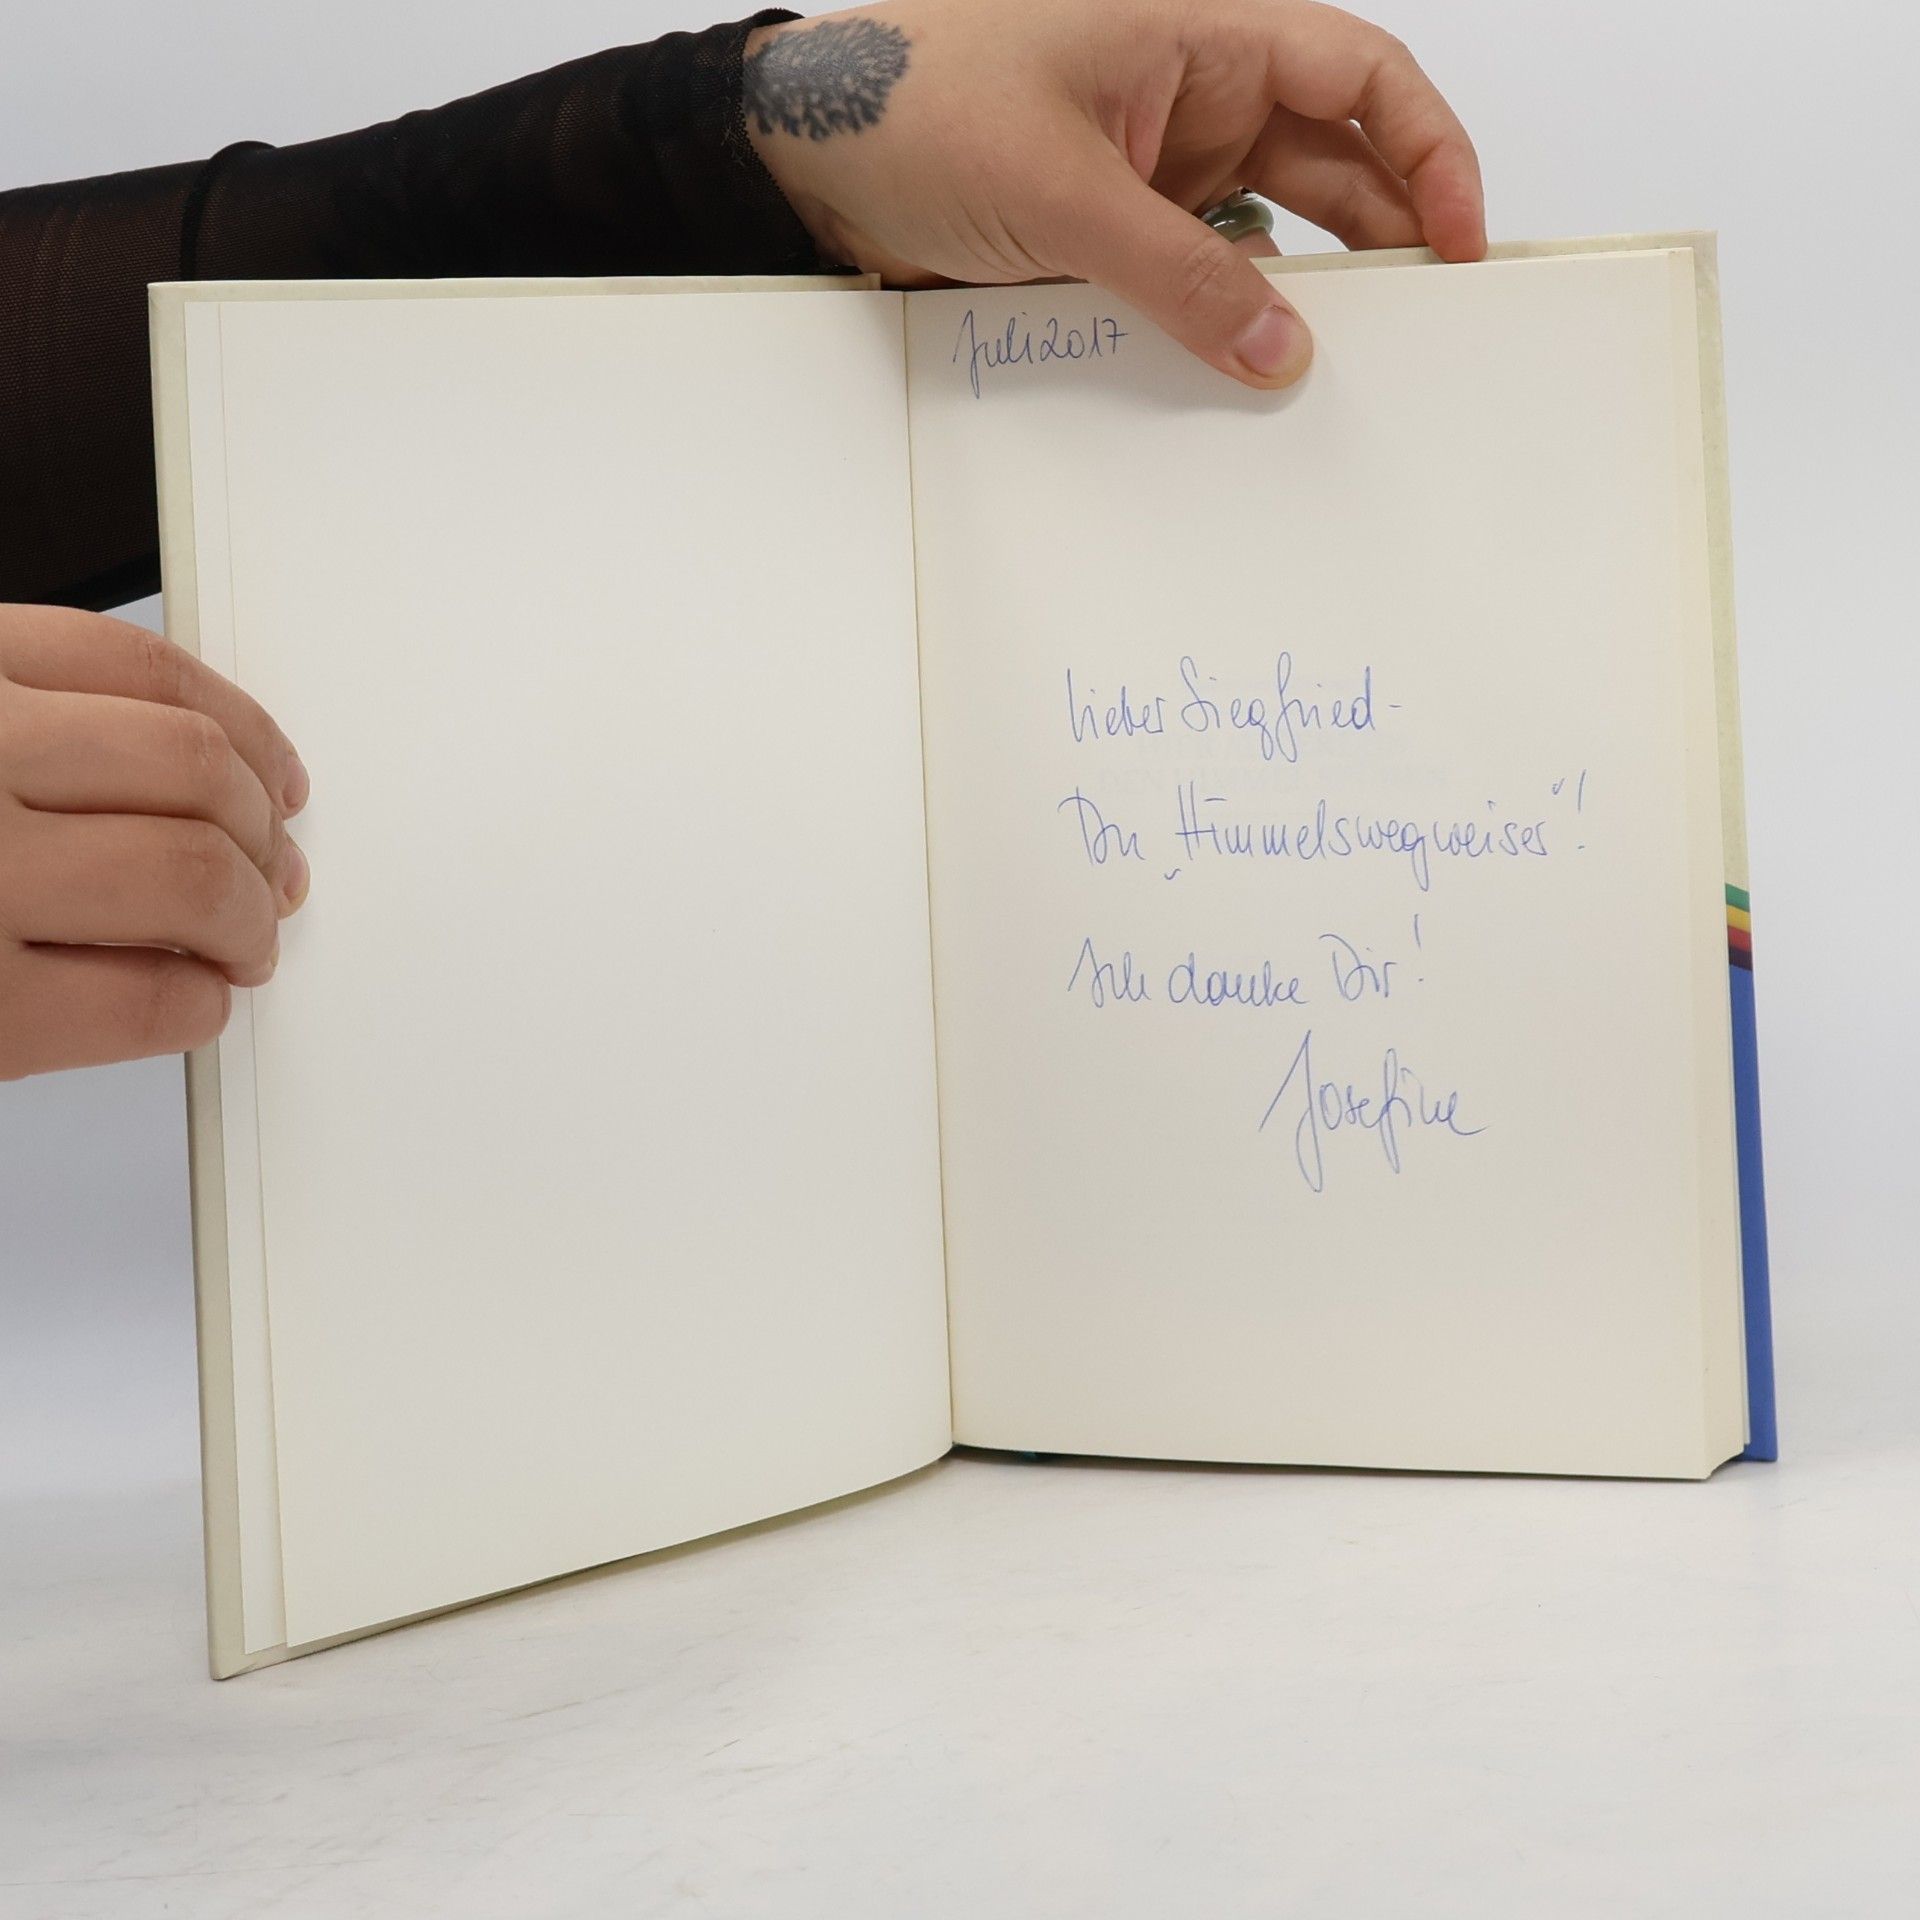 Juli 2017
Lieber Siegfried -
Du „Himmelswegweiser“!
Ich danke Dir!
Josefine